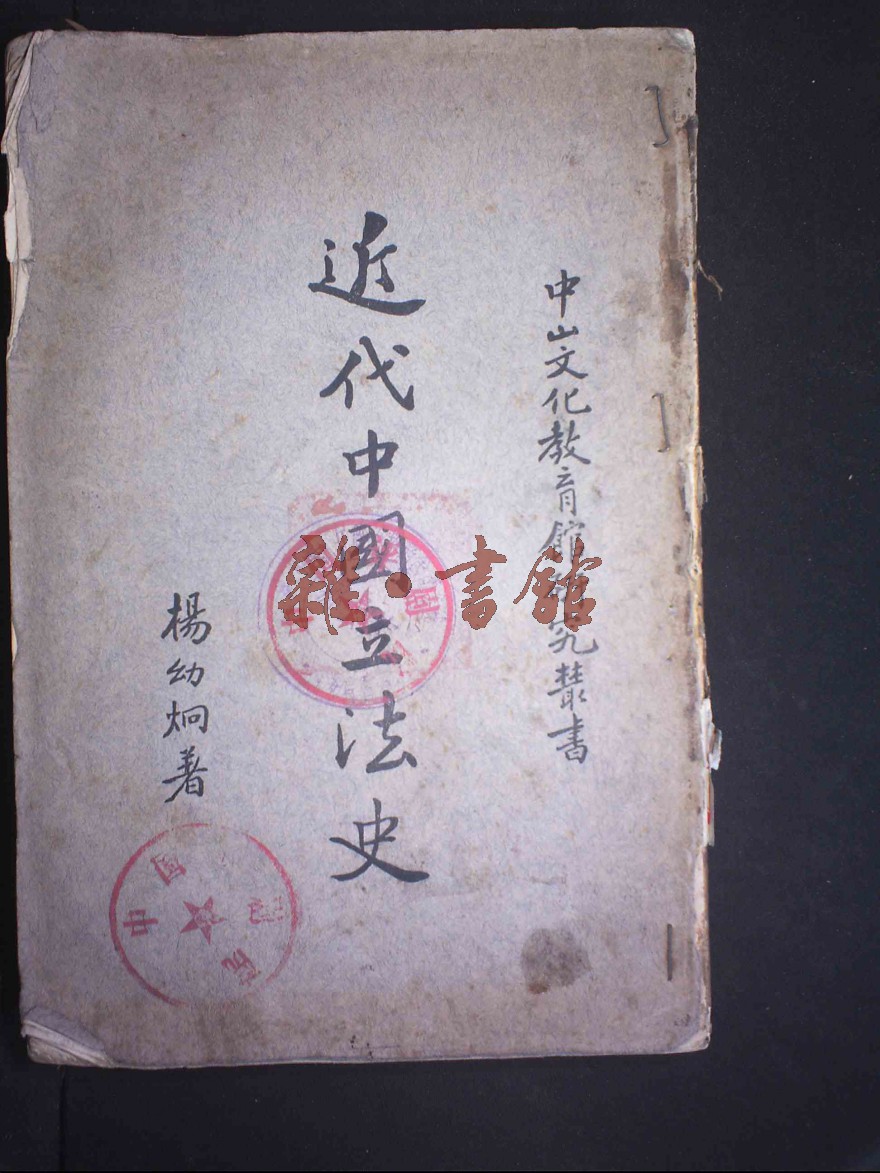 中山文化教育館研究叢書
近代中國立法史
楊幼炯著
雜·書館
中国